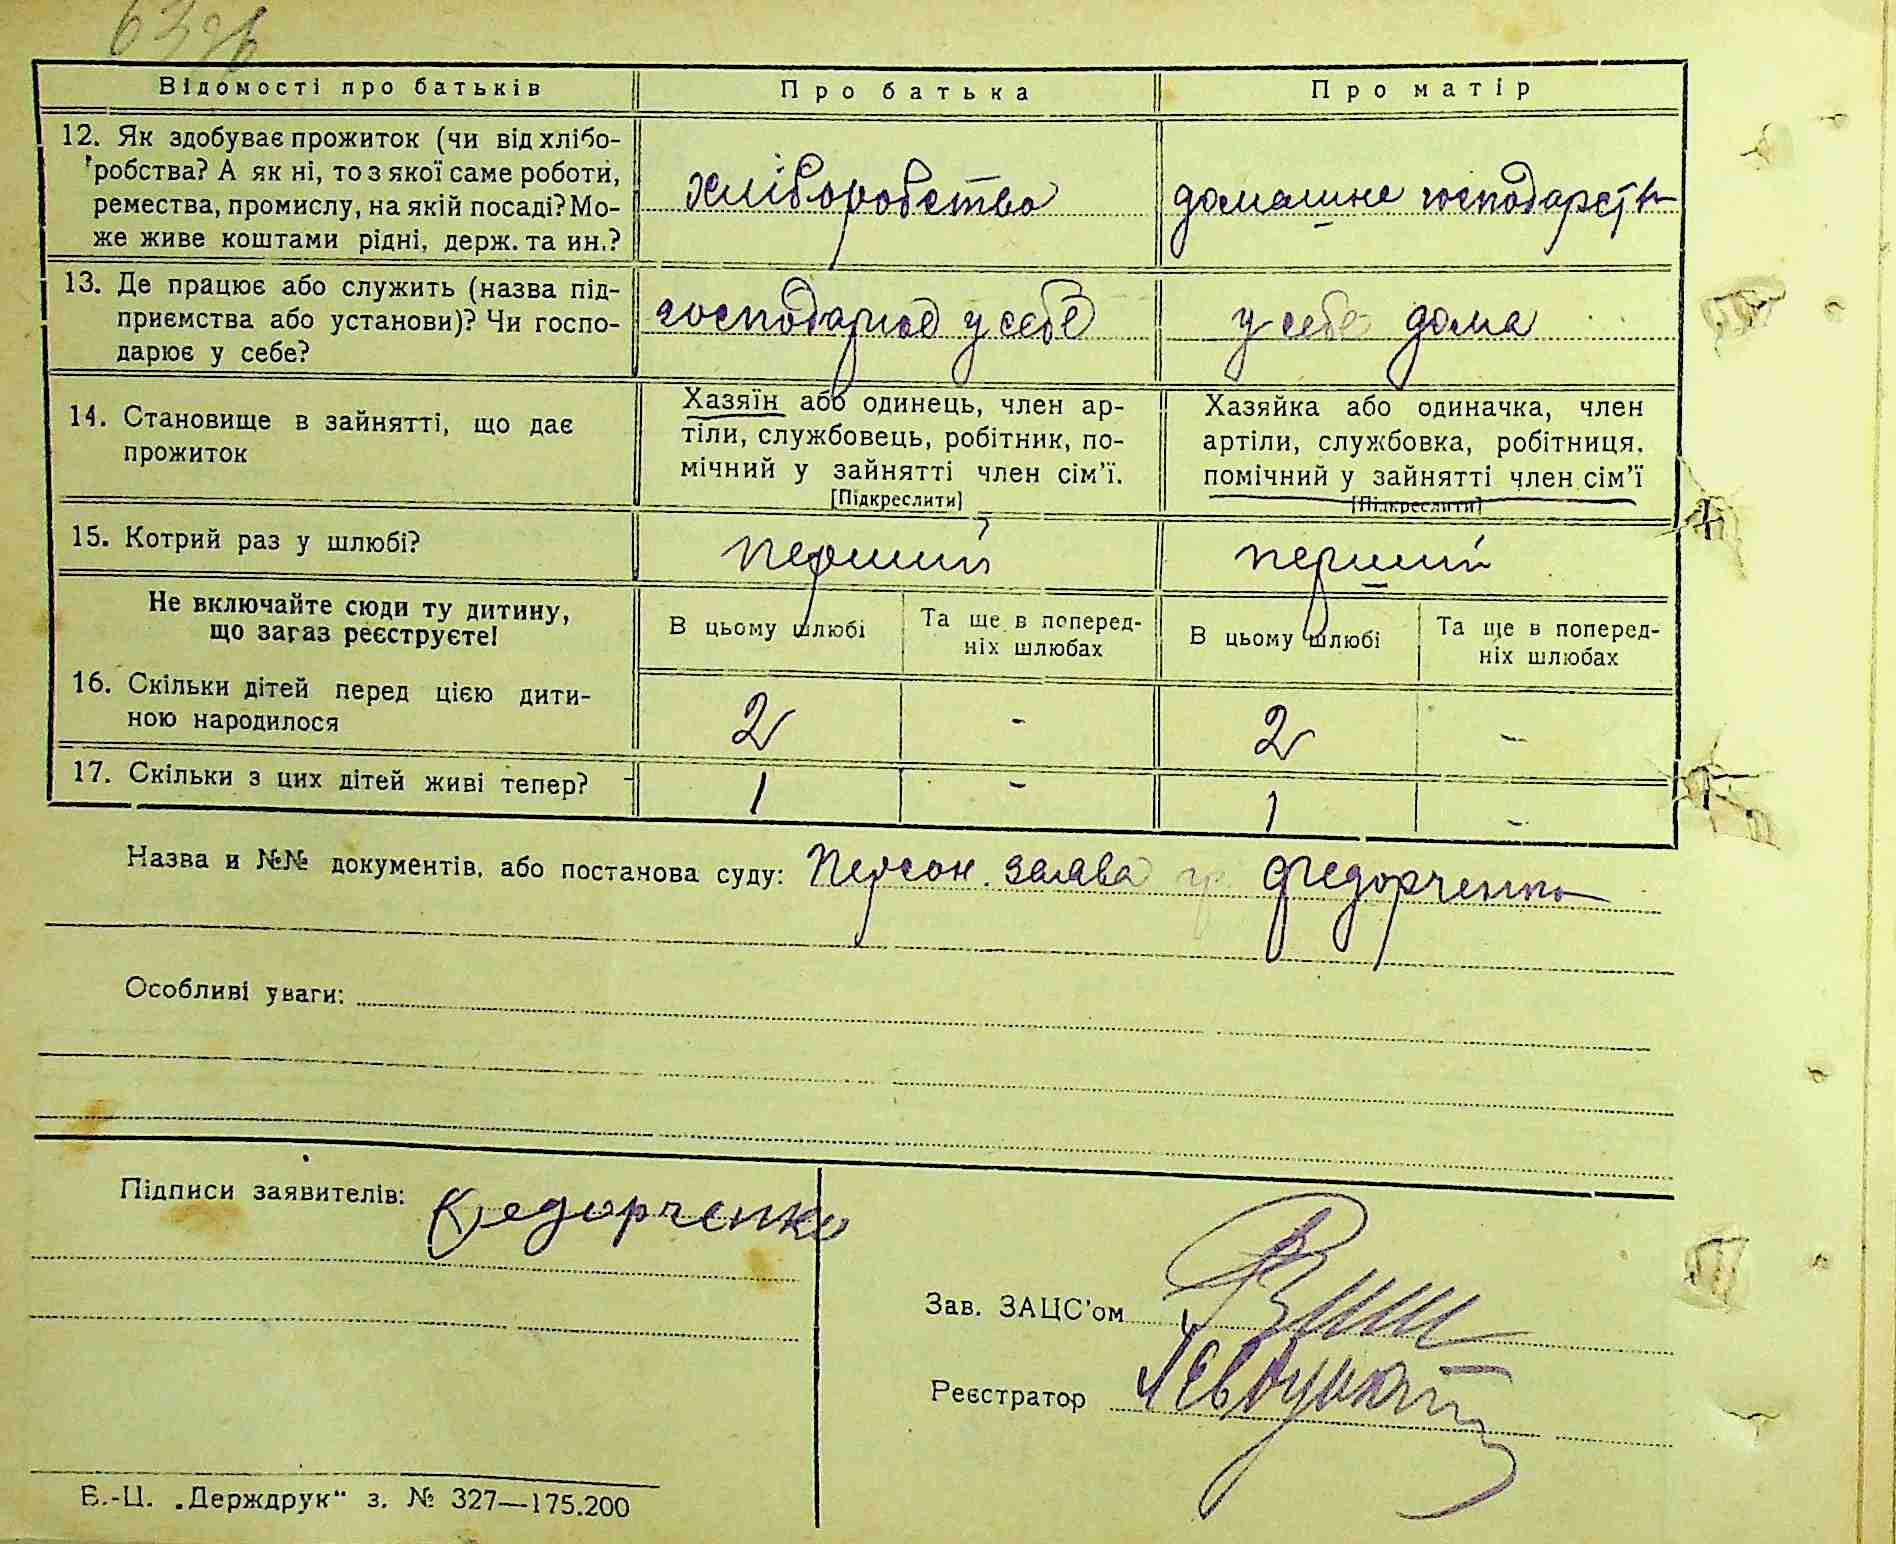 6396
Відомості про батьків
Про батька
Про матір
12. Як здобуває прожиток (чи від хлібо-
робства? А як ні, то з якої саме роботи,
ремества, промислу, на якій посаді? Мо-
же живе коштами рідні, держ. та ин.?
хліборобство
домашне господарство
13. Де працює або служить (назва під-
приємства або установи)? Чи госпо-
дарює у себе?
господарює у себе
у себе дома
14. Становище в зайнятті, що дає
прожиток
Хазяїн або одинець, член ар-
тіли, службовець, робітник, по-
мічний у зайнятті член сім'ї.
[Підкреслити]
Хазяйка або одиначка, член
артіли, службовка, робітниця,
помічний у зайнятті член сім'ї
[Підкреслити]
15. Котрий раз у шлюбі?
перший
перший
Не включайте сюди ту дитину,
що загаз реєструєте!
В цьому шлюбі
Та ще в поперед-
ніх шлюбах
В цьому шлюбі
Та ще в поперед-
ніх шлюбах
16. Скільки дітей перед цією дити-
ною народилося
2 - 2 -
17. Скільки з цих дітей живі тепер?
1 - 1 -
Назва и №№ документів, або постанова суду: Персон. заява гр. Федорченко
Особливі уваги:
Підписи заявителів: Федорченко
Зав. ЗАЦС'ом
Реєстратор
Б.-Ц. „Держдрук" з. № 327—175.200